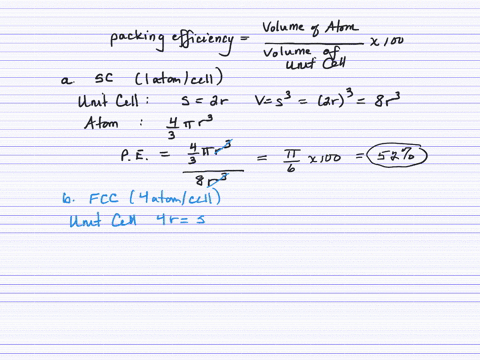 packing efficiency = Volume of Atom / Volume of Unit Cell x 100
a. SC (1 atom/cell)
Unit Cell: s = 2r V = s³ = (2r)³ = 8r³
Atom : 4/3 π r³
P.E. = 4/3 π r³ / 8 r³ = π/6 x 100 = 52%
b. FCC (4 atom/cell)
Unit Cell 4r = s